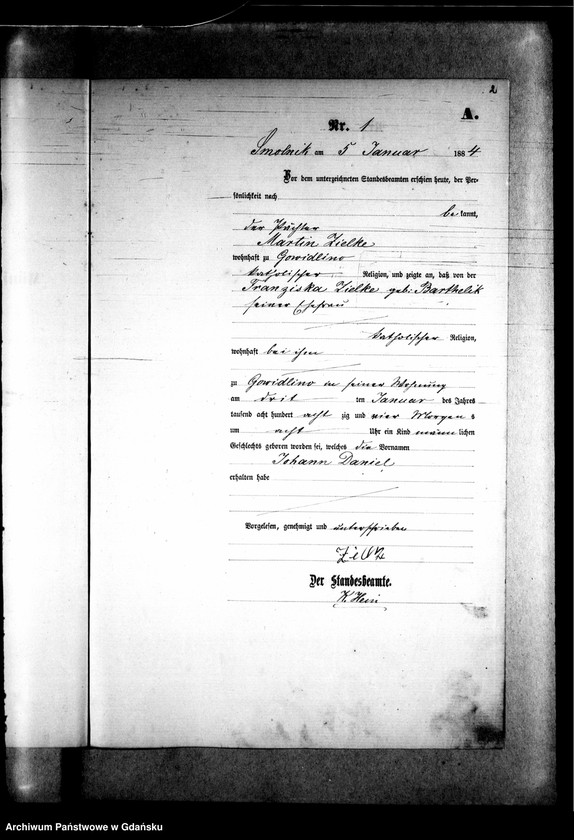 2
A.
Nr. 1
Smolnik am 5 Januar 1884
Vor dem unterzeichneten Standesbeamten erschien heute, der Per-
sönlichkeit nach
be kannt,
der Pächter
Martin Zielke
wohnhaft zu Gowidlino
katholischer Religion, und zeigte an, daß von der
Franziska Zielke geb: Barthelik
seiner Ehefrau
katholischer Religion,
wohnhaft bei ihm
zu Gowidlino in seiner Wohnung
am drit ten Januar des Jahres
tausend acht hundert acht zig und vier Morgens
um acht Uhr ein Kind männlichen
Geschlechts geboren worden sei, welches die Vornamen
Johann Daniel
erhalten habe
Vorgelesen, genehmigt und unterschrieben
Der Standesbeamte.
Archiwum Państwowe w Gdańsku